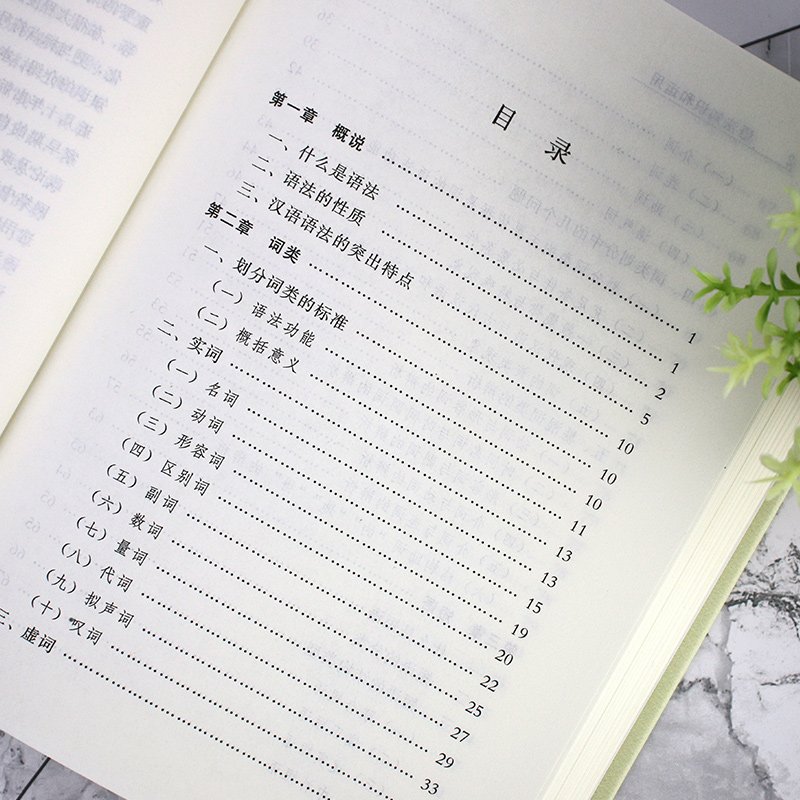 目 录
第一章 概说 …… 1
一、什么是语法 …… 1
二、语法的性质 …… 2
三、汉语语法的突出特点 …… 5
第二章 词类 …… 10
一、划分词类的标准 …… 10
（一）语法功能 …… 10
（二）概括意义 …… 11
二、实词 …… 13
（一）名词 …… 13
（二）动词 …… 15
（三）形容词 …… 19
（四）区别词 …… 20
（五）副词 …… 22
（六）数词 …… 25
（七）量词 …… 27
（八）代词 …… 29
（九）拟声词 …… 33
（十）叹词 ……
三、虚词 ……